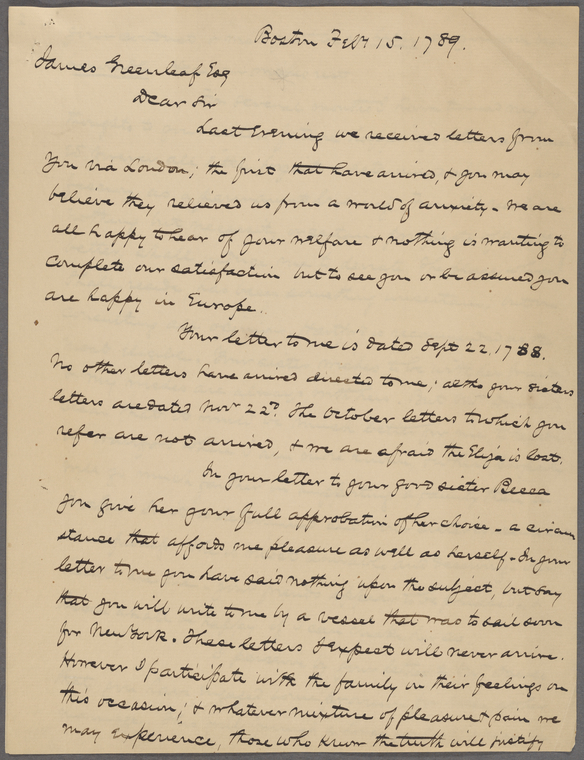 Boston Feby 15. 1789.
James Greenleaf Esq
Dear Sir
Last Evening we received letters from
you via London; the first that have arrived, & you may
believe they relieved us from a world of anxiety. We are
all happy to hear of your welfare & nothing is wanting to
complete our satisfaction but to see you or be assured you
are happy in Europe.
Your letter to me is dated Sept 22. 1788.
No other letters have arrived directed to me; altho your sisters
letters are dated Novr 22d. The October letters to which you
refer are not arrived, & we are afraid the Eliza is lost.
In your letter to your good sister Becca
you give her your full approbation of her choice - a circum
stance that affords me pleasure as well as herself. In your
letter to me you have said nothing upon the subject, but say
that you will write to me by a vessel that was to sail soon
for New York. These letters I expect will never arrive.
However I participate with the family in their feelings on
this occasion; & whatever mixture of pleasure & pain we
may experience, those who know the truth will justify